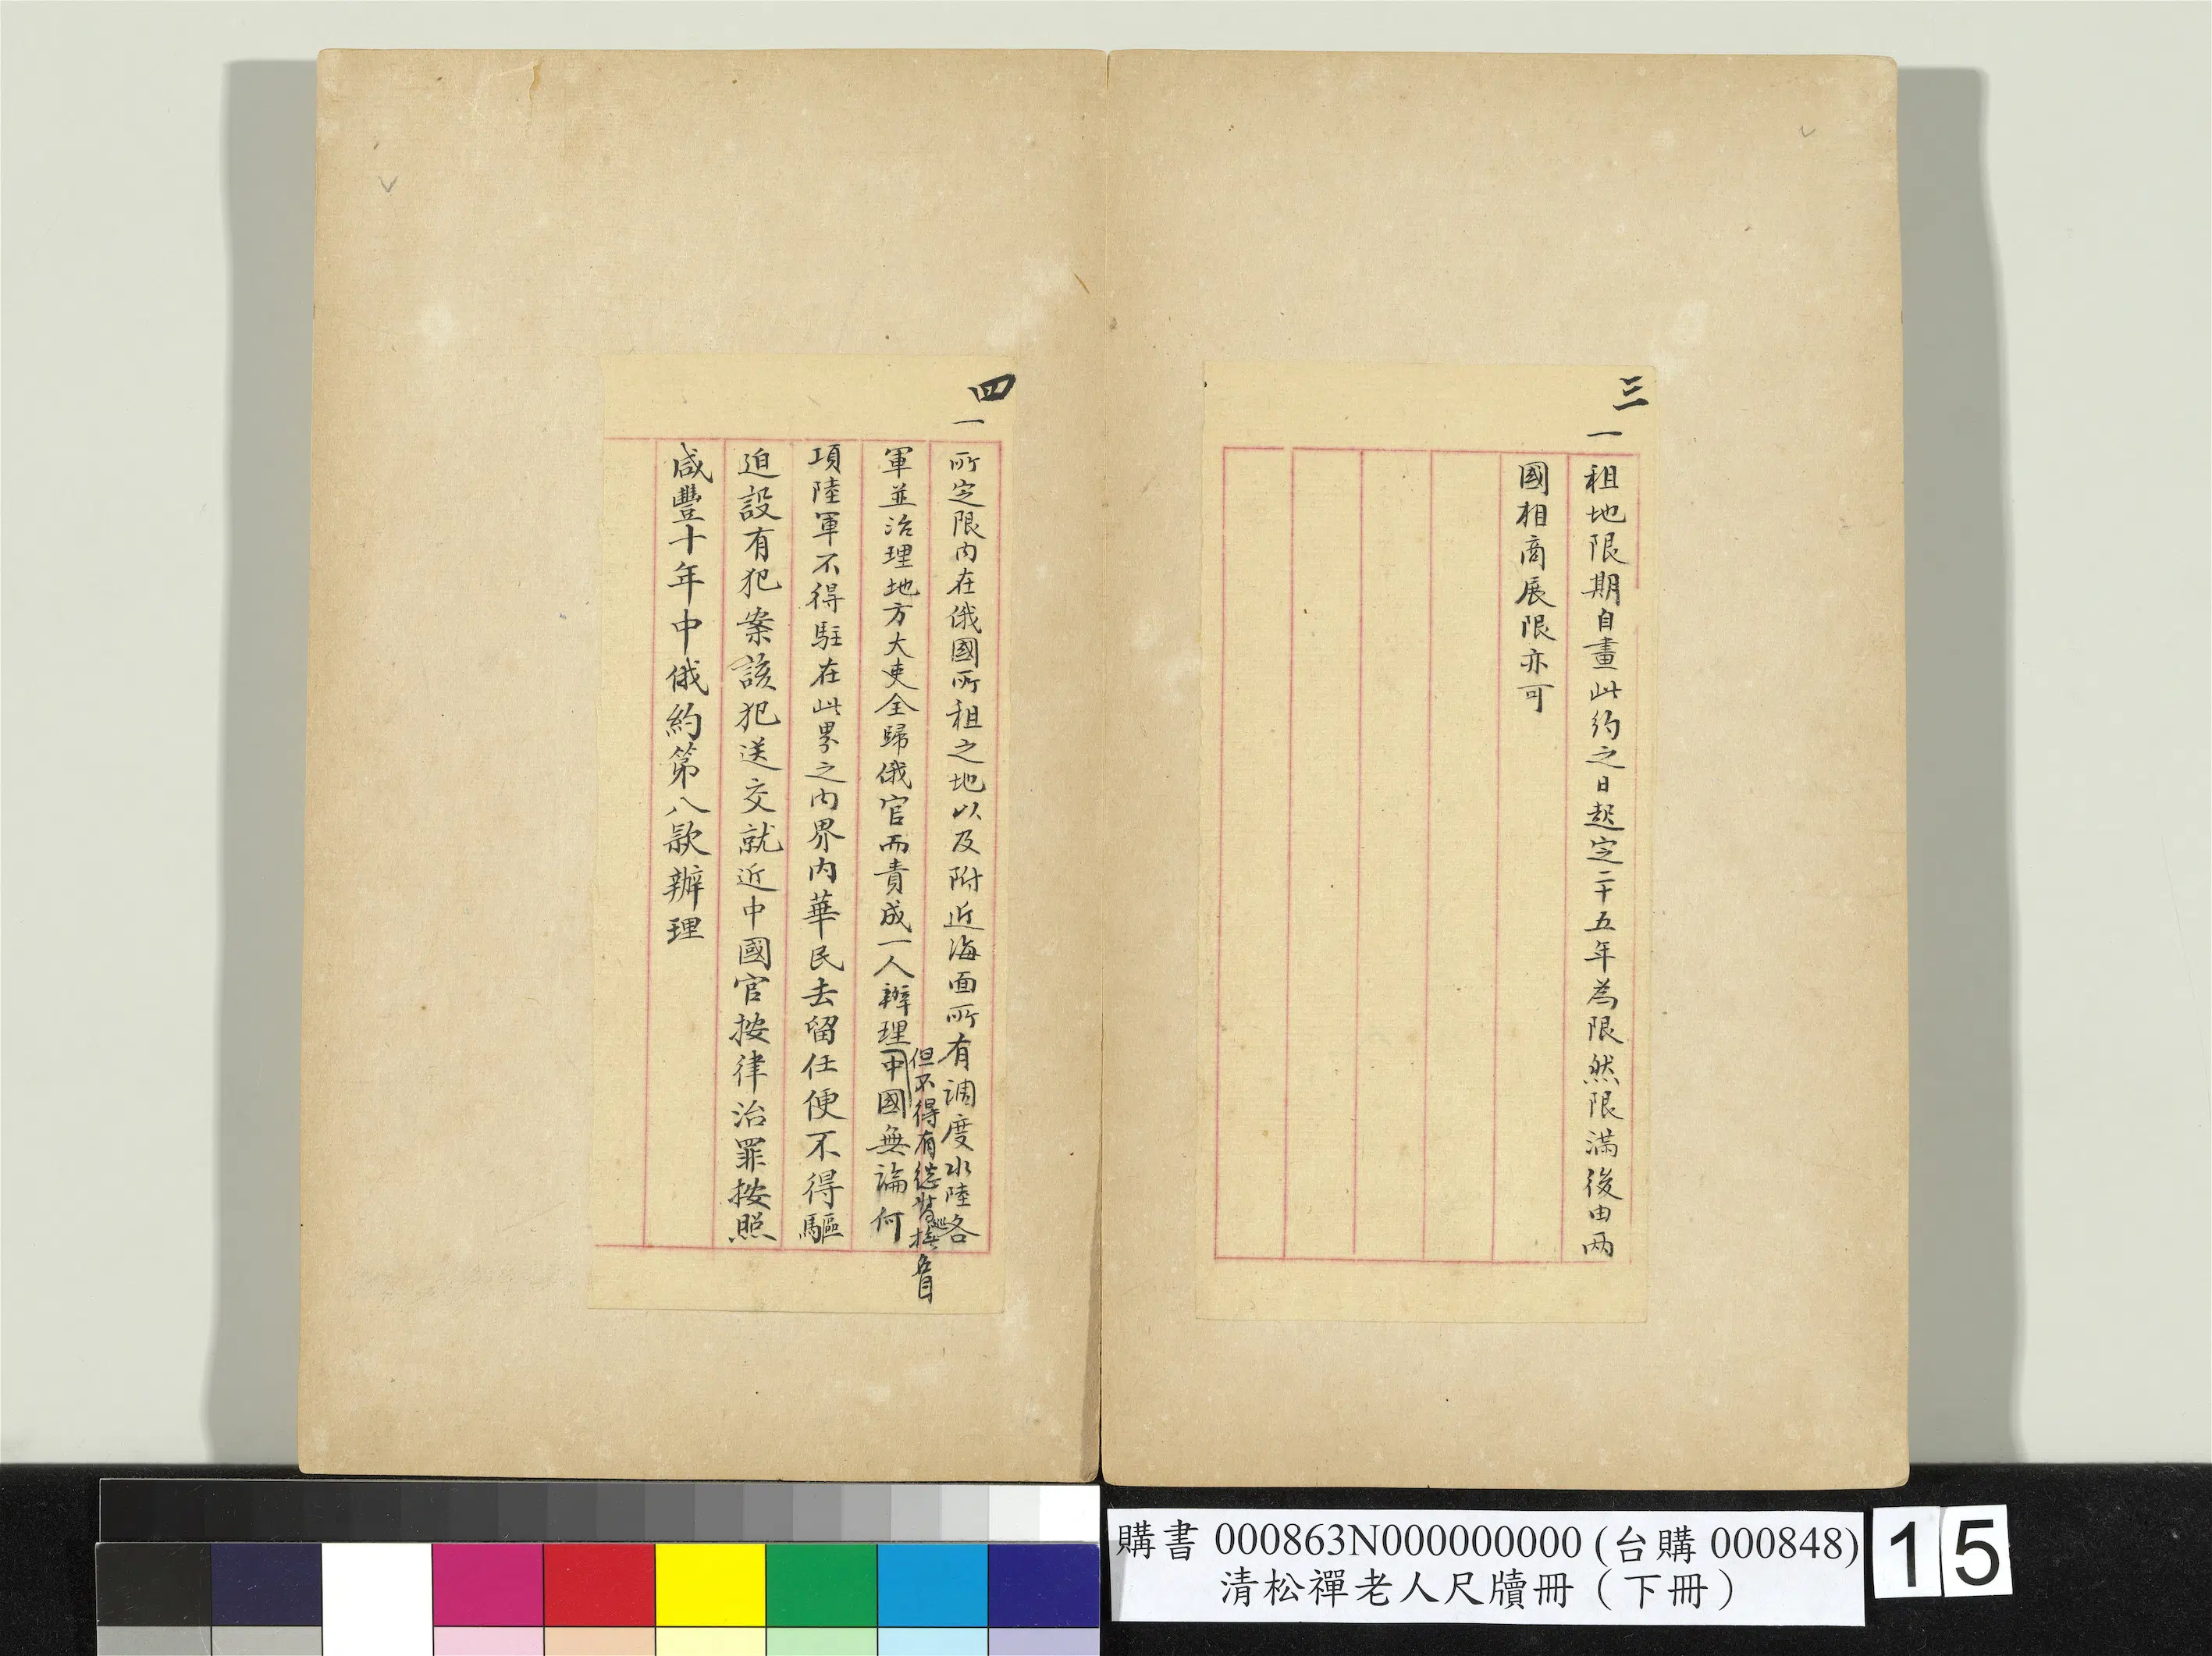 三
一
租地限期自畫此約之日起定二十五年為限然限滿後由两
國相商展限亦可
四
一
所定限内在俄國所租之地以及附近海面所有調度水陸各
但不得有總督巡撫名目
軍並治理地方大吏全歸俄官而責成一人辦理中國無論何
項陸軍不得駐在此界之内界内華民去留任便不得驅
迫設有犯案該犯送交就近中國官按律治罪按照
咸豐十年中俄約第八款辦理
購書 000863N000000000 (台購 000848)
清松禪老人尺牘冊（下冊）
15